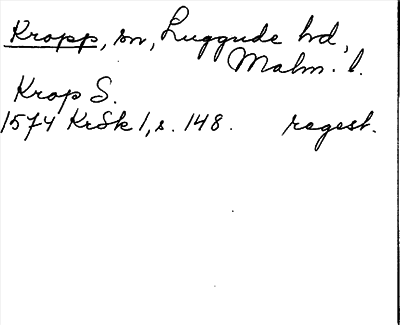 Kropp, sn, Luggude hd,
Malm. l.
Krop S.
1574 KrSk 1, s. 148. regest.